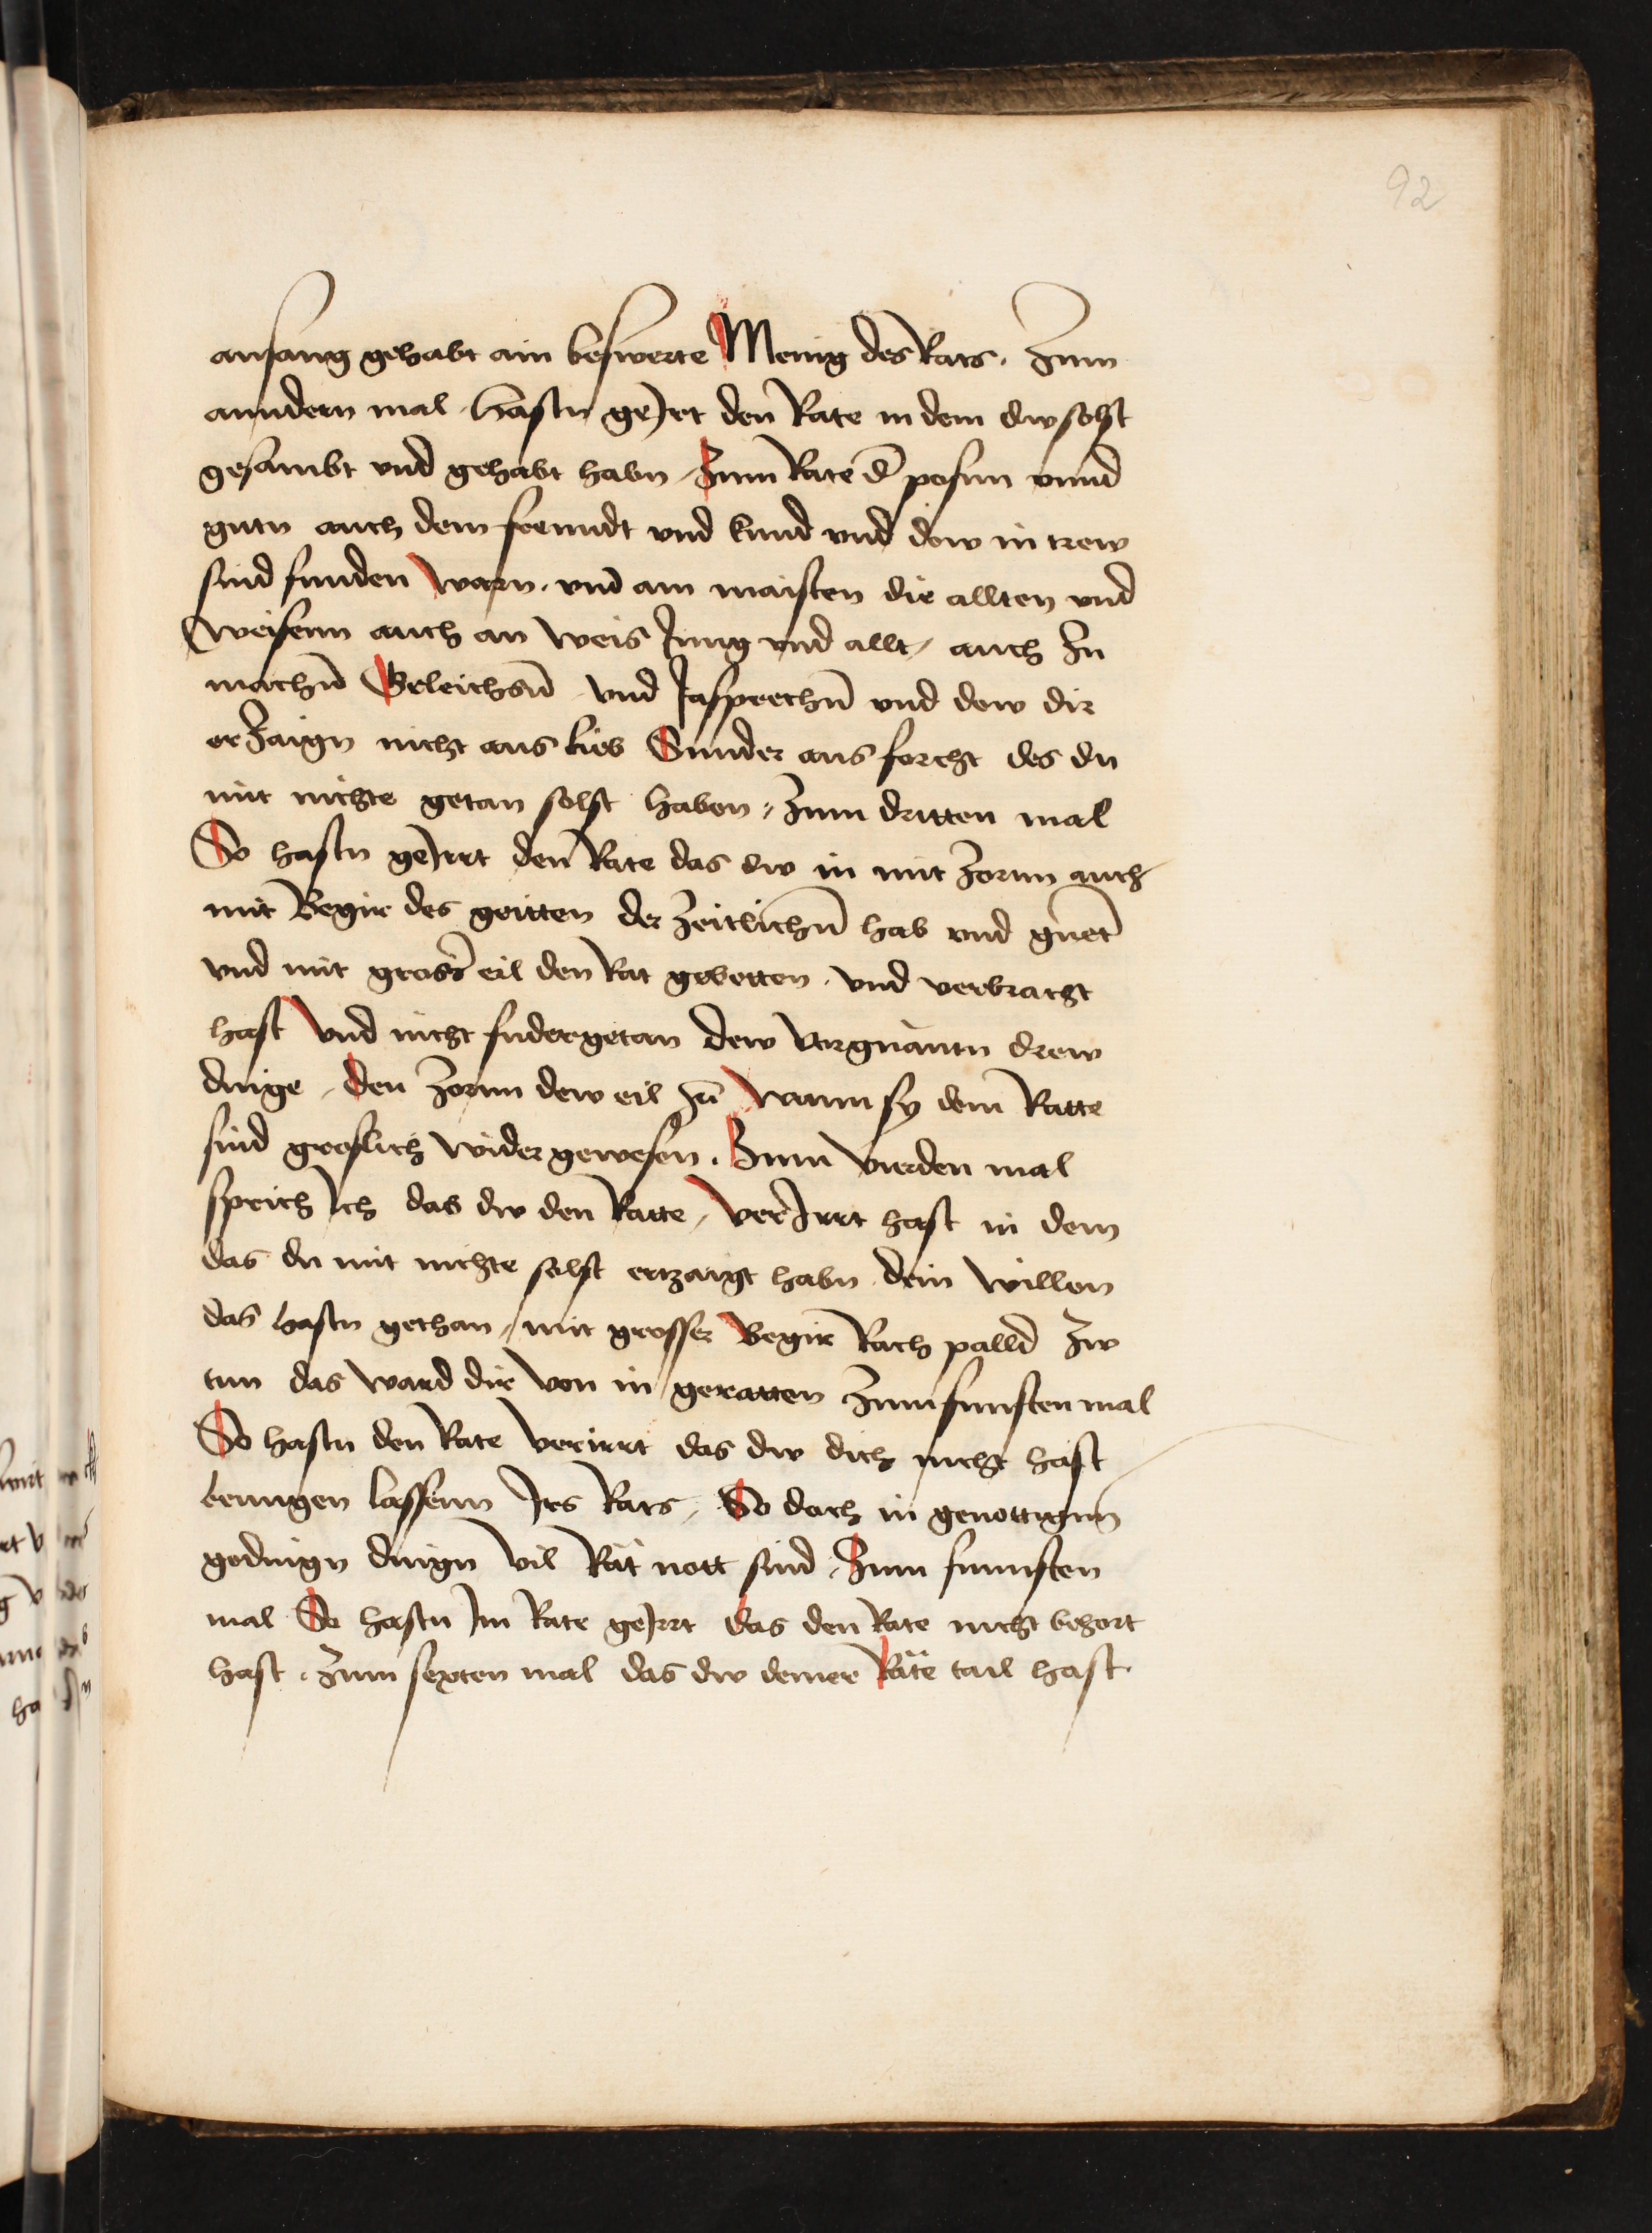 92
anfang gehabt ain beswerte Menig des Rats . Zum
anndern mal hastu geJrt den Rate in dem dw solst
gesambt vnd gehabt habn / Zum Rate d' posun vnnd
gutn auch dem freundt vnd kund vnd dew in trew
sind funden warn . vnd am maisten die allten vnd
weisenn auch an weis Jung vnd allt / auch zu
machn̄ Geleichsn̄ vnd Jasprechn̄ vnd dew dir
erzaign nicht aus lieb Sunder aus forcht des du
mit nichte getan solst haben / Zum dritten mal
So hastu geJrrt den Rate das dw in mit Zornn auch
mit Begir des geitten der zeitlichn̄ hab vnd guet
vnd mit gross' eil den Rat gebetten . vnd verbracht
hast vnd nicht sudergetan dew vorgnantn drew
dinge / den Zornn dew eil zū wann sy dem Ratte
sind groslich wider gewesen . Zum vierden mal
sprich Jch das dw den Ratte / verJrrt hast in dem
das du mit nichte solst ertzaigt habn dein willen
das hastu gethan / mit grosser Begir Rach palld zw
tun das ward dir von in geratten Zum funften mal
So hastu den Rate verirrt das dw dich nicht hast
benugen lassenn Jrs Rats / So doch in genottignn̄
gedingn dingn vil Rät nott sind / Zum funnften
mal So hastu Jm Rate geJrrt das den Rate nicht behort
hast . Zum sexten mal das dw deiner Räte tail hast